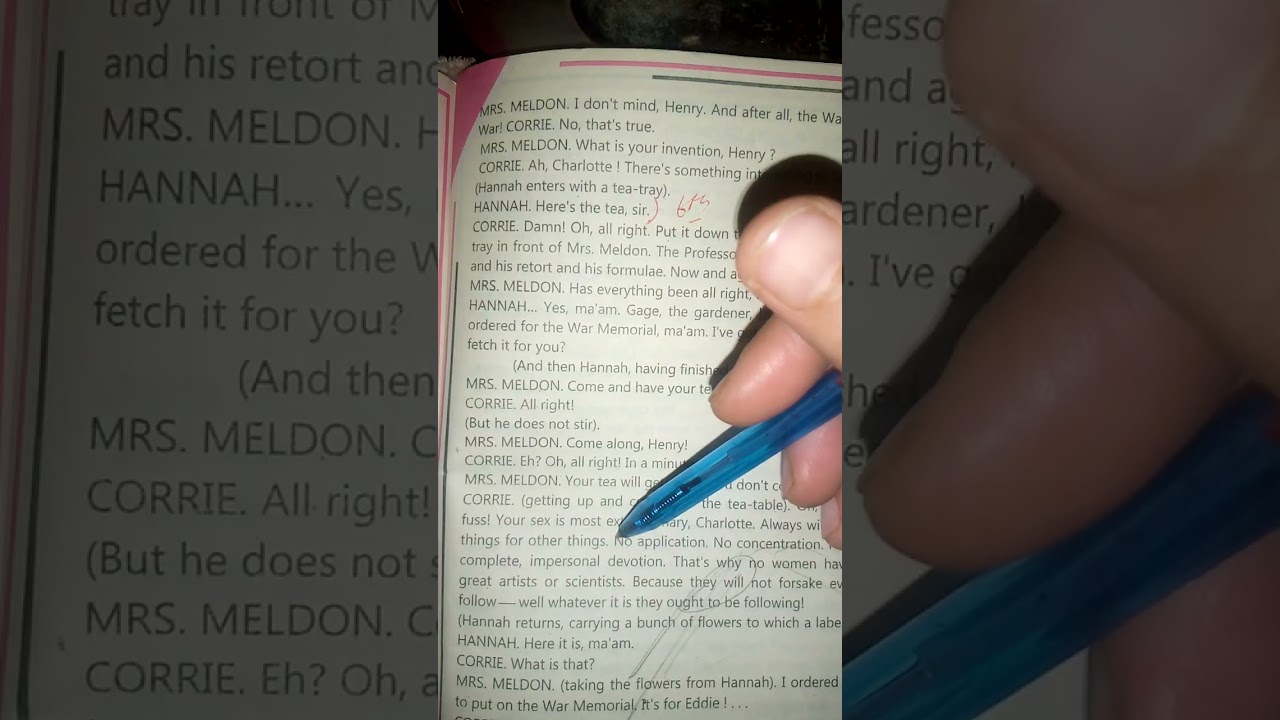 MRS. MELDON. I don't mind, Henry. And after all, the Wa
War! CORRIE. No, that's true.
MRS. MELDON. What is your invention, Henry ?
CORRIE. Ah, Charlotte ! There's something
(Hannah enters with a tea-tray).
HANNAH. Here's the tea, sir. 6th
CORRIE. Damn! Oh, all right. Put it down
tray in front of Mrs. Meldon. The Professo
and his retort and his formulae. Now and a
MRS. MELDON. Has everything been all right,
HANNAH... Yes, ma'am. Gage, the gardener,
ordered for the War Memorial, ma'am. I've g
fetch it for you?
(And then Hannah, having finishe
MRS. MELDON. Come and have your te
CORRIE. All right!
(But he does not stir).
MRS. MELDON. Come along, Henry!
CORRIE. Eh? Oh, all right! In a minu
MRS. MELDON. Your tea will ge don't c
CORRIE. (getting up and the tea-table).
fuss! Your sex is most Charlotte. Always wi
things for other things. No application. No concentration.
complete, impersonal devotion. That's why no women hav
great artists or scientists. Because they will not forsake ev
follow — well whatever it is they ought to be following!
(Hannah returns, carrying a bunch of flowers to which a labe
HANNAH. Here it is, ma'am.
CORRIE. What is that?
MRS. MELDON. (taking the flowers from Hannah). I ordered
to put on the War Memorial. It's for Eddie ! . . .